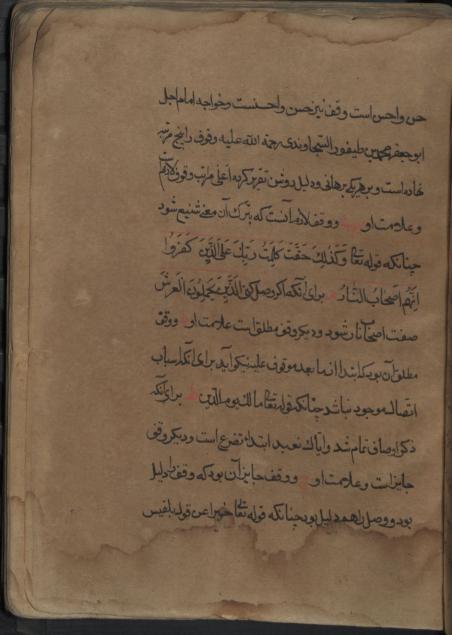 حسن واحسن است وقف نیز حسن واحسنست وخواجه امام اجل
ابوجعفر محمد بن طیفور السجاوندی رحمة الله علیه وقوف را پنج مرتبه
نهاده است و بر هر یکی برهانی و دلیل روشن تقریر کرده اعلی مراتب وقوف لازم است
وعلامت او م ووقف لازم آنست که بترک آن معنی شنیع شود
چنانکه قوله تعالی وَكَذَلِكَ حَقَّتْ كَلِمَتُ رَبِّكَ عَلَى الَّذِينَ كَفَرُوا
اَنَّهُمْ اَصْحَابُ النَّارِ م برای آنکه اگر وصل کنی اَلَّذِينَ يَحْمِلُونَ الْعَرْشَ
صفت اصحاب نار شود ودیگر وقف مطلق است علامت او ط ووقف
مطلق آن بود که ابتدا از ما بعد موقوف علیه نیکو آید برای آنکه اسباب
اتصال موجود نباشد چنانکه قوله تعالی مالك يوم الدين ط برای آنکه
ذکر اوصاف تمام شد وایاك نعبد ابتداء تضرع است ودیگر وقف
جایز است وعلامت او ج ووقف جایز آن بود که وقف را دلیل
بود ووصل را هم دلیل بود چنانکه قوله تعالی خبرا عن قول بلقیس